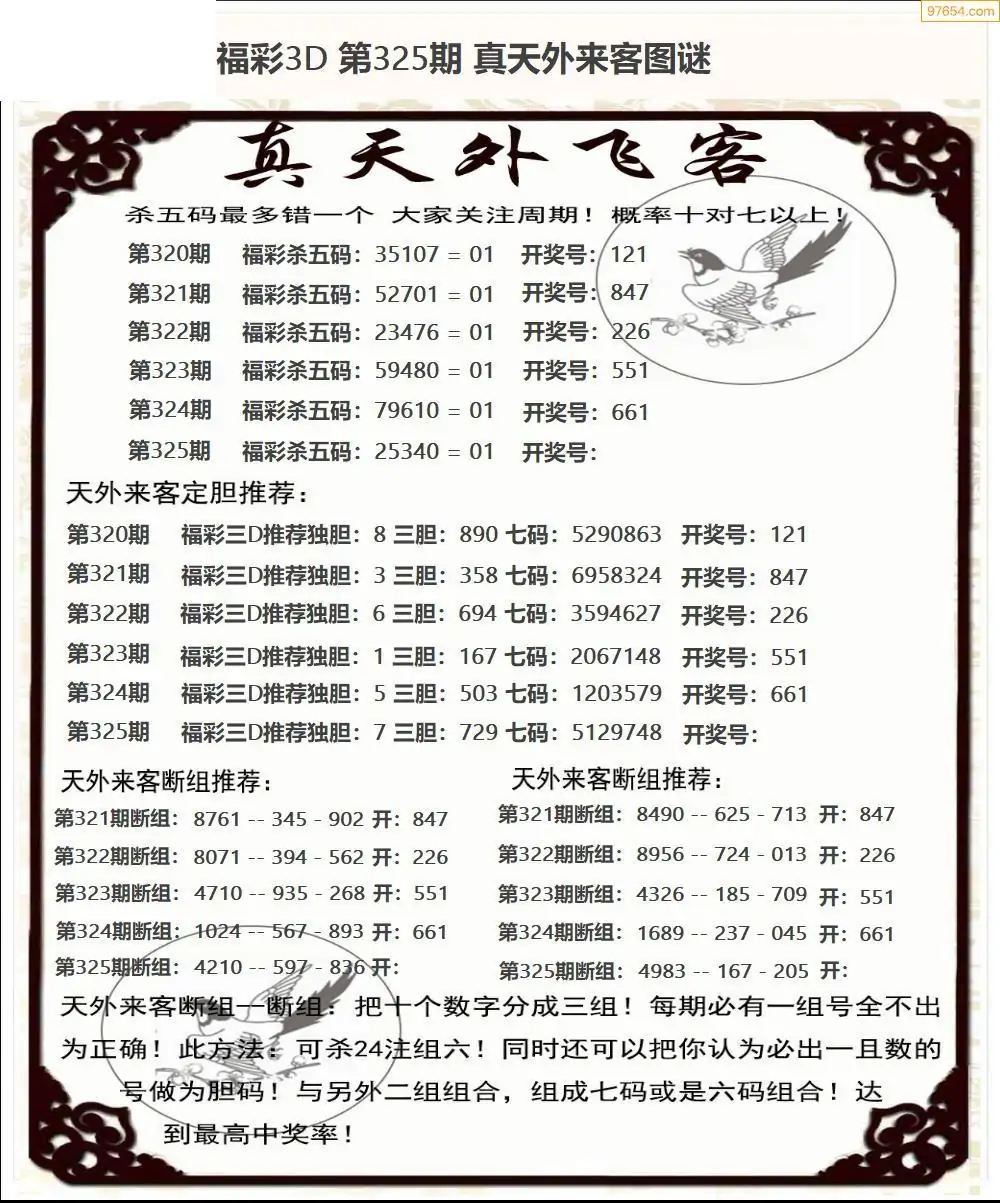 97654.com
福彩3D 第325期 真天外来客图谜
真天外飞客
杀五码最多错一个 大家关注周期！概率十对七以上！
第320期 福彩杀五码：35107 = 01 开奖号：121
第321期 福彩杀五码：52701 = 01 开奖号：847
第322期 福彩杀五码：23476 = 01 开奖号：226
第323期 福彩杀五码：59480 = 01 开奖号：551
第324期 福彩杀五码：79610 = 01 开奖号：661
第325期 福彩杀五码：25340 = 01 开奖号：
天外来客定胆推荐：
第320期 福彩三D推荐独胆：8 三胆：890 七码：5290863 开奖号：121
第321期 福彩三D推荐独胆：3 三胆：358 七码：6958324 开奖号：847
第322期 福彩三D推荐独胆：6 三胆：694 七码：3594627 开奖号：226
第323期 福彩三D推荐独胆：1 三胆：167 七码：2067148 开奖号：551
第324期 福彩三D推荐独胆：5 三胆：503 七码：1203579 开奖号：661
第325期 福彩三D推荐独胆：7 三胆：729 七码：5129748 开奖号：
天外来客断组推荐：
第321期断组：8761 -- 345 - 902 开：847
第322期断组：8071 -- 394 - 562 开：226
第323期断组：4710 -- 935 - 268 开：551
第324期断组：1024 -- 567 - 893 开：661
第325期断组：4210 -- 597 - 836 开：
天外来客断组推荐：
第321期断组：8490 -- 625 - 713 开：847
第322期断组：8956 -- 724 - 013 开：226
第323期断组：4326 -- 185 - 709 开：551
第324期断组：1689 -- 237 - 045 开：661
第325期断组：4983 -- 167 - 205 开：
天外来客断组一断组：把十个数字分成三组！每期必有一组号全不出
为正确！此方法：可杀24注组六！同时还可以把你认为必出一且数的
号做为胆码！与另外二组组合，组成七码或是六码组合！达
到最高中奖率！